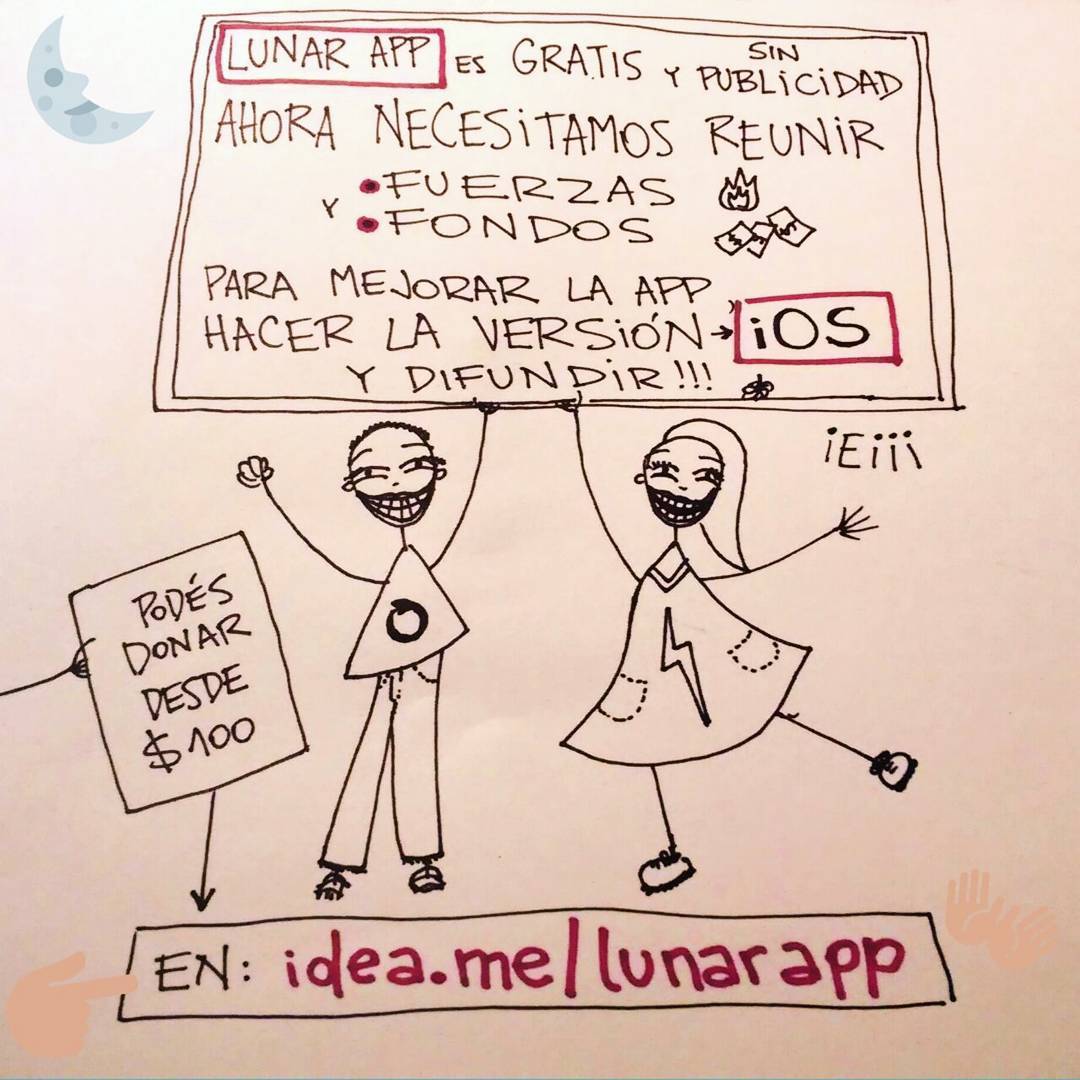 LUNAR APP ES GRATIS Y SIN PUBLICIDAD
AHORA NECESITAMOS REUNIR
• FUERZAS
Y • FONDOS
PARA MEJORAR LA APP,
HACER LA VERSIÓN → iOS
Y DIFUNDIR!!!
¡Eiii
PODÉS
DONAR
DESDE
$100
EN: idea.me/lunarapp